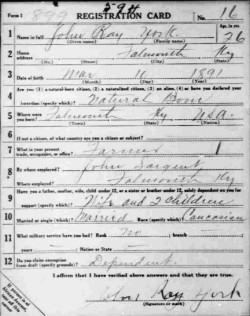 Form 1
59th
REGISTRATION CARD
No. 16
1 Name in full John Ray York
(Given name) (Family name)
Age, in yrs. 26
2 Home address Falmouth Ky
(No.) (Street) (City) (State)
3 Date of birth Mar 1891
(Month) (Day) (Year)
4 Are you (1) a natural-born citizen, (2) a naturalized citizen, (3) an alien, (4) or have you declared your intention (specify which)? Natural Born
5 Where were you born? Falmouth Ky USA
(Town) (State) (Nation)
6 If not a citizen, of what country are you a citizen or subject?
7 What is your present trade, occupation, or office? Farmer
8 By whom employed? John Sargent
Where employed? Falmouth Ky
9 Have you a father, mother, wife, child under 12, or a sister or brother under 12, solely dependent on you for support (specify which)? Wife and 2 children
10 Married or single (which)? Married Race (specify which)? Caucasian
11 What military service have you had? Rank No
years Nation or State
12 Do you claim exemption from draft (specify grounds)? Dependent
I affirm that I have verified above answers and that they are true.
John Ray York
(Signature or mark)